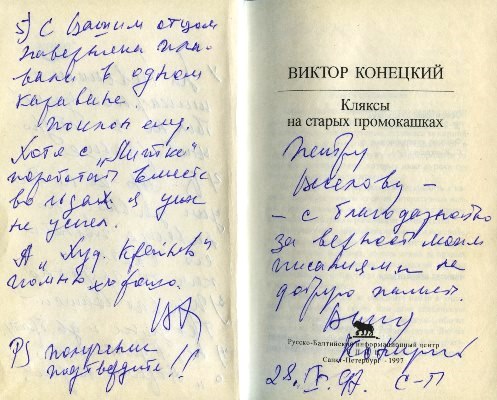 5) С Вашим отцом
наверняка пла-
вали в одном
караване.
Поклон ему.
Хотя с
поработать вместе
во льдах я уже
не успел.
А „Худ. Крайнев“
помню хорошо.
PS получение
подтвердите!!
ВИКТОР КОНЕЦКИЙ
Кляксы
на старых промокашках
Петру
–
– с благодарностью
за верность моим
писаниям и на
добрую память.
Виктор
Конецкий
Русско-Балтийский информационный центр
Санкт-Петербург · 1997
28.IV.97. С-П